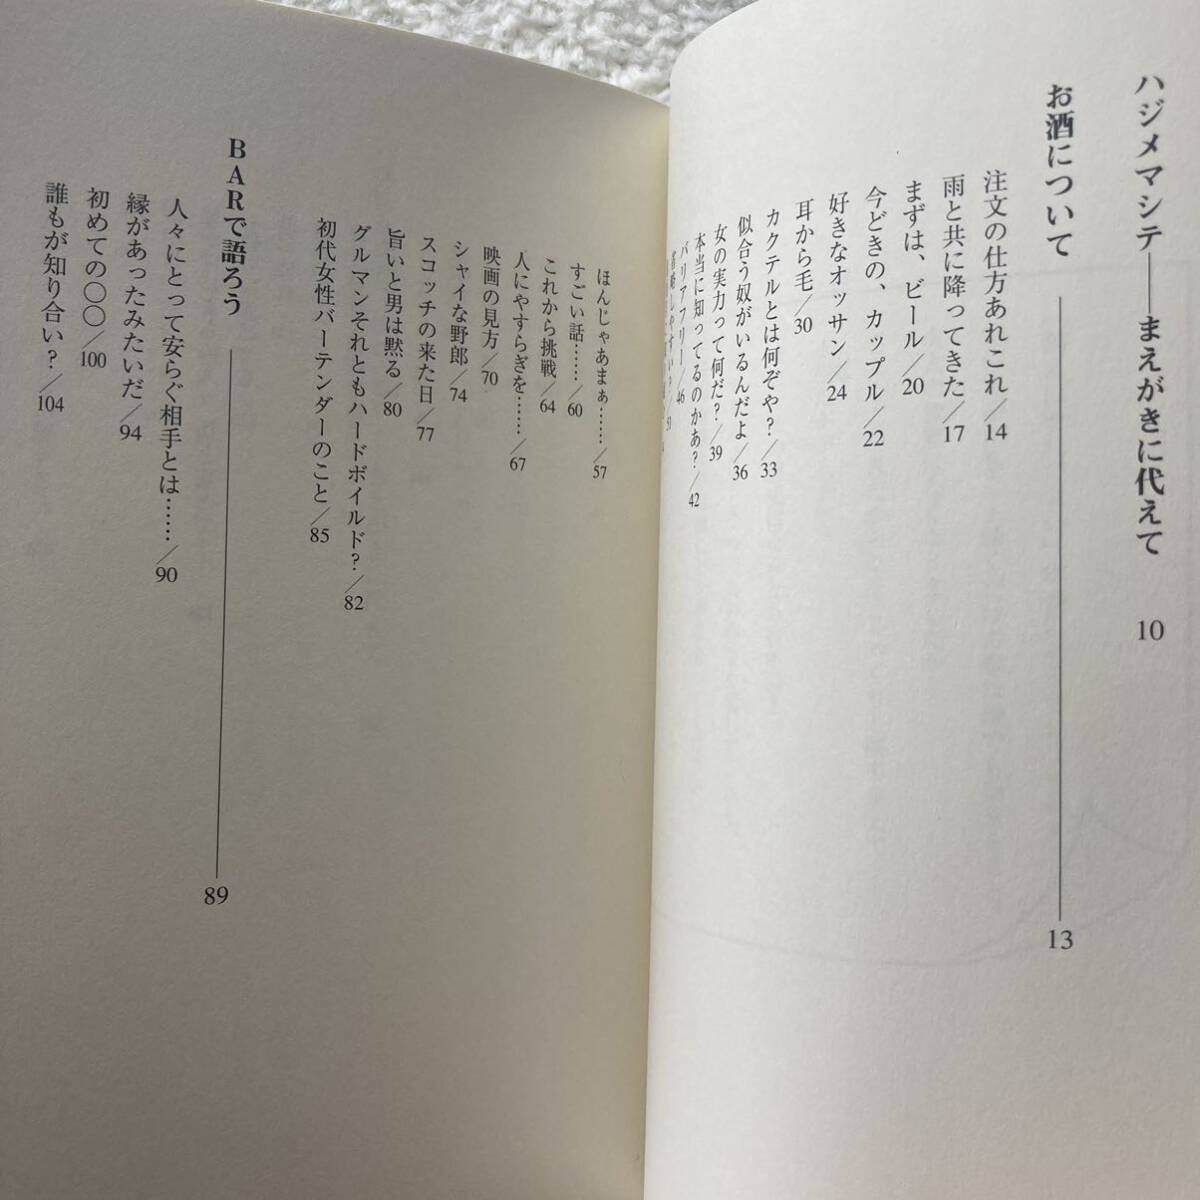 ハジメマシテ――まえがきに代えて 10
お酒について 13
注文の仕方あれこれ/14
雨と共に降ってきた/17
まずは、ビール/20
今どきの、カップル/22
好きなオッサン/24
耳から毛/30
カクテルとは何ぞや?/33
似合う奴がいるんだよ/36
女の実力って何だ?/39
本当に知ってるのかあ?/42
バリアフリー/46
ほんじゃあまぁ……/57
すごい話……/60
これから挑戦/64
人にやすらぎを……/67
映画の見方/70
シャイな野郎/74
スコッチの来た日/77
旨いと男は黙る/80
グルマンそれともハードボイルド?/82
初代女性バーテンダーのこと/85
BARで語ろう 89
人々にとって安らぐ相手とは……/90
縁があったみたいだ/94
初めての〇〇/100
誰もが知り合い?/104